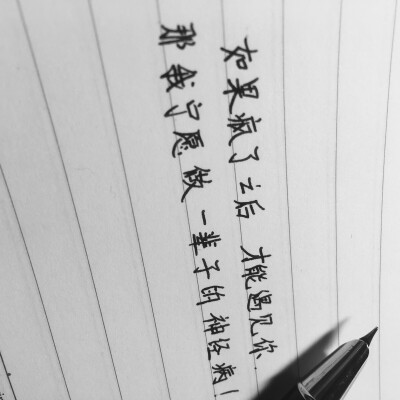 如果疯了之后 才能遇见你.
那我宁愿做一辈子的神经病！